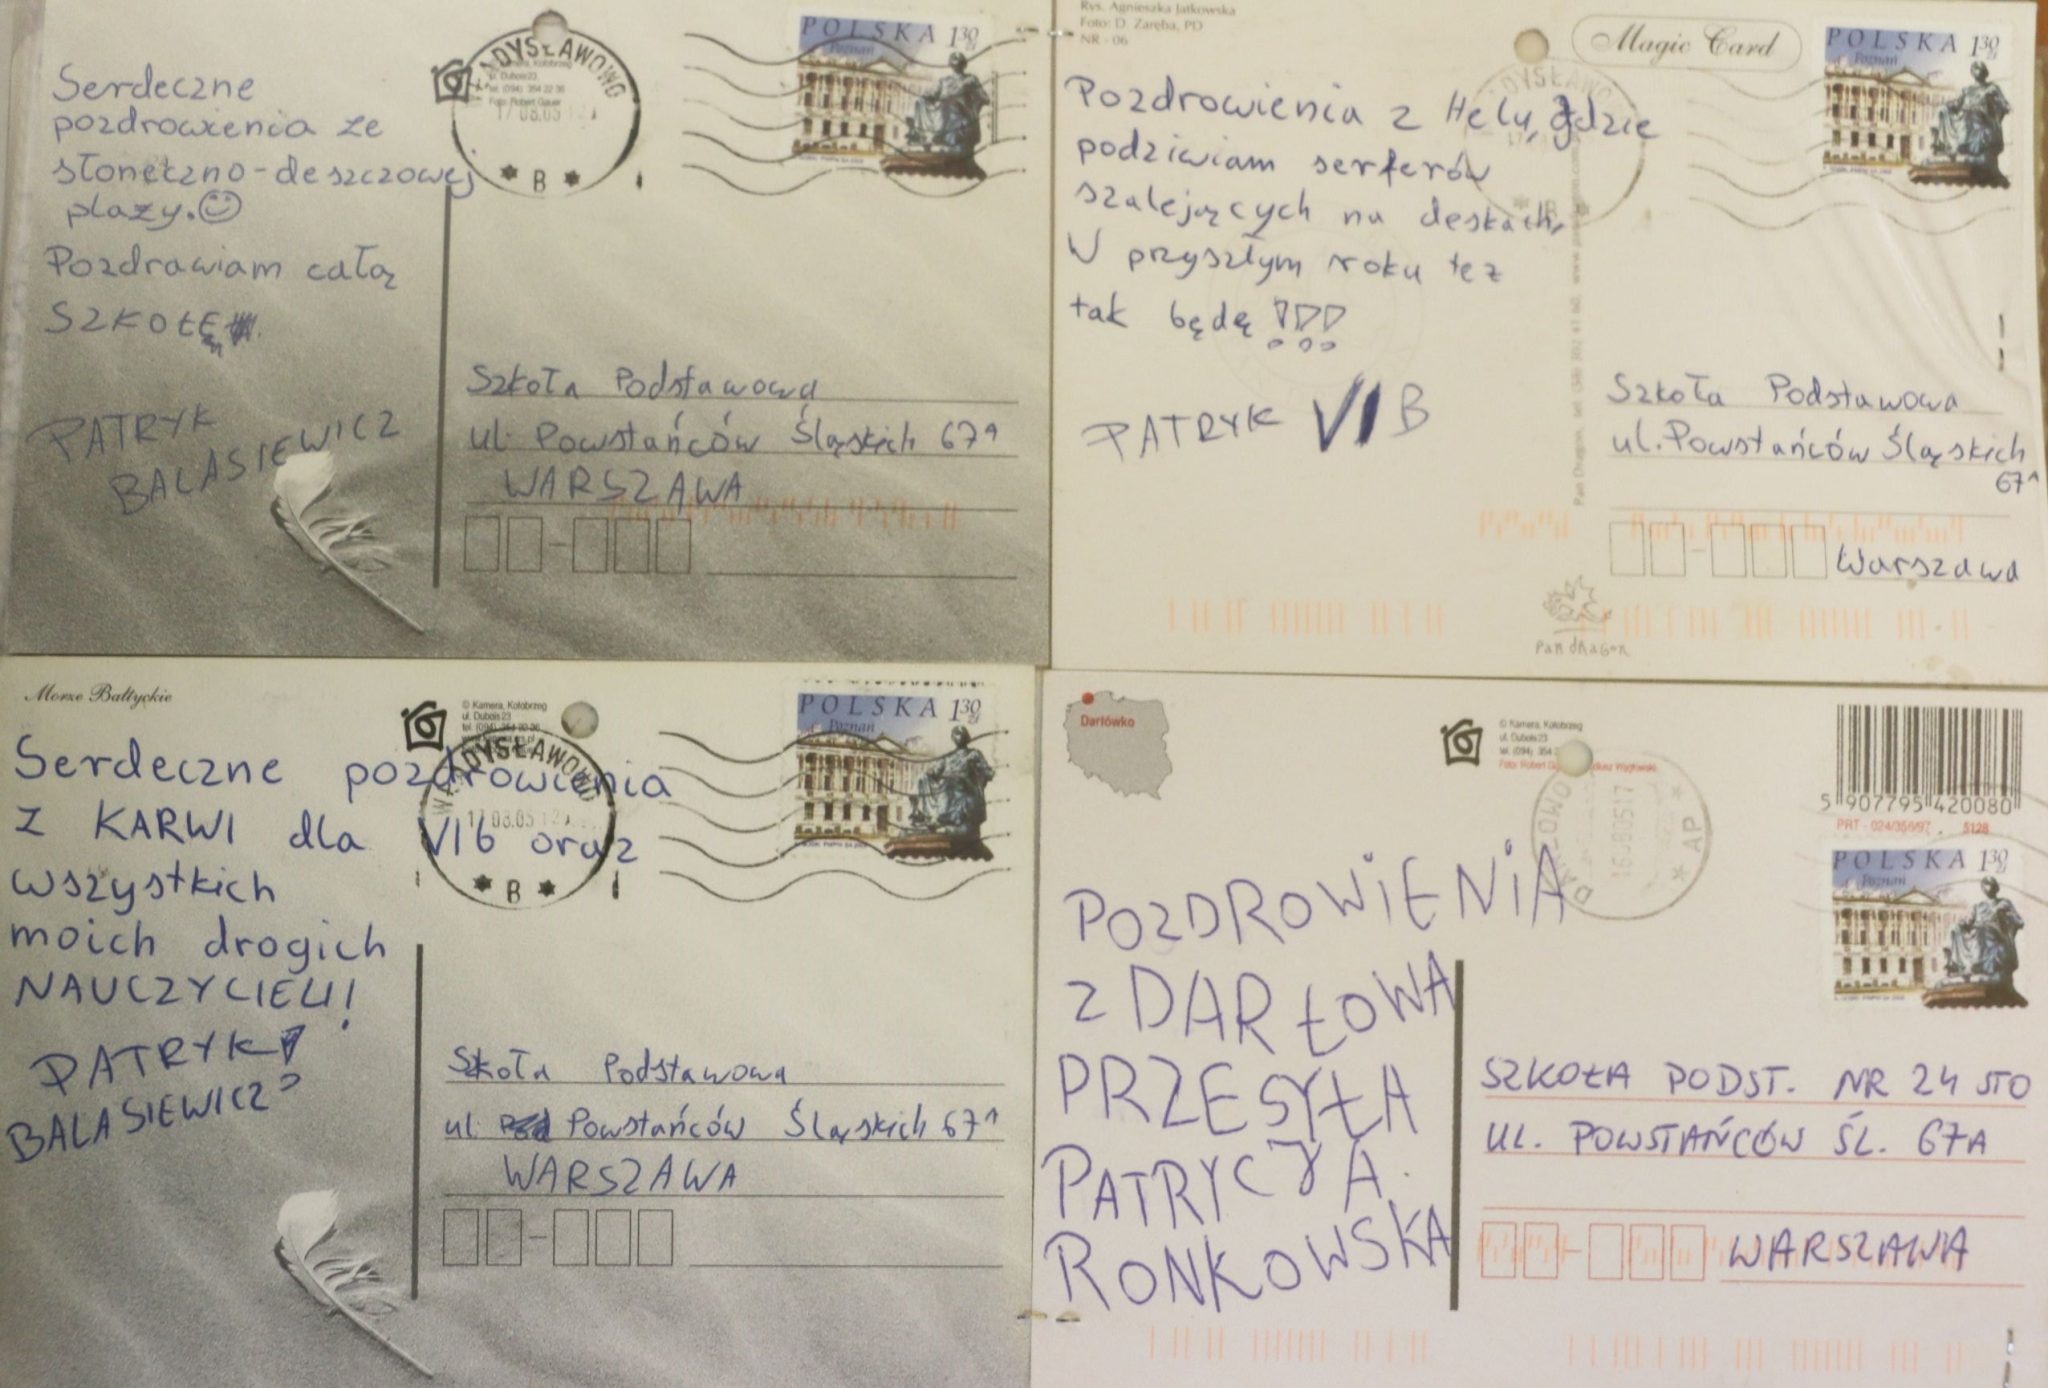 Serdeczne
pozdrowienia ze
słoneczno-deszczowej
plaży.
Pozdrawiam całą
SZKOŁĘ
PATRYK
BALASIEWICZ
© Kamera, Kołobrzeg
ul. Dubois 23
tel. (094) 354 22 36
Foto: Robert Gauer
WŁADYSŁAWOWO
17 08.05
B
POLSKA 1 30 zł
Poznań
Szkoła Podstawowa
ul. Powstańców Śląskich 67A
WARSZAWA
Rys. Agnieszka Jatkowska
Foto: D. Zaręba, PD
NR - 06
Magic Card
POLSKA 1 30 zł
Poznań
Pozdrowienia z Helu, gdzie
podziwiam serferów
szalejących na deskach,
W przyszłym roku też
tak będę !!!
PATRYK VI B
Szkoła Podstawowa
ul. Powstańców Śląskich
67A
Warszawa
Pan dRagon
Morze Bałtyckie
© Kamera, Kołobrzeg
ul. Dubois 23
tel. (094) 354 22 36
WŁADYSŁAWOWO
17 08.05
B
POLSKA 1 30 zł
Poznań
Serdeczne pozdrowienia
Z KARWI dla VI b oraz
wszystkich
moich drogich
NAUCZYCIELI!
PATRYK
BALASIEWICZ
Szkoła Podstawowa
ul. Powstańców Śląskich 67A
WARSZAWA
Darłówko
© Kamera, Kołobrzeg
ul. Dubois 23
5 907795 420080
PRT - 024/356/97 5128
AP
POLSKA 1 30 zł
Poznań
POZDROWIENIA
Z DARŁOWA
PRZESYŁA
PATRYCJA
RONKOWSKA
SZKOŁA PODST. NR 24 STO
UL. POWSTAŃCÓW ŚL. 67A
WARSZAWA